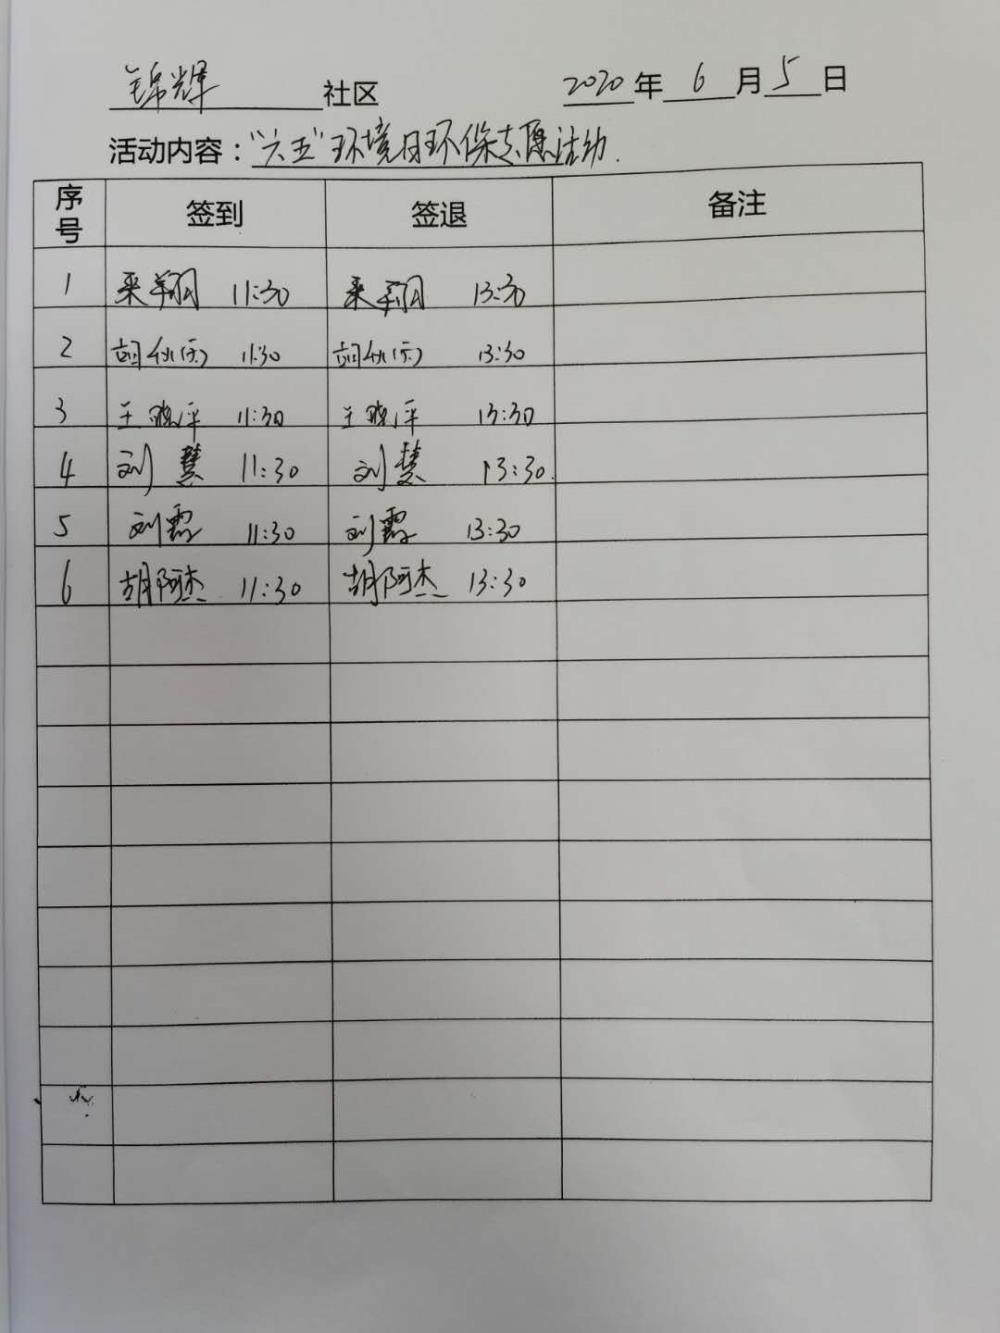 锦辉社区 2020年6月5日
活动内容：“六五”环境日环保志愿活动.
序号 签到 签退 备注
1 采翔 11:30 采翔 13:30
2 胡 11:30 胡 13:30
3 王晓萍 11:30 王晓萍 13:30
4 刘慧 11:30 刘慧 13:30.
5 刘霞 11:30 刘霞 13:30
6 胡阿杰 11:30 胡阿杰 13:30